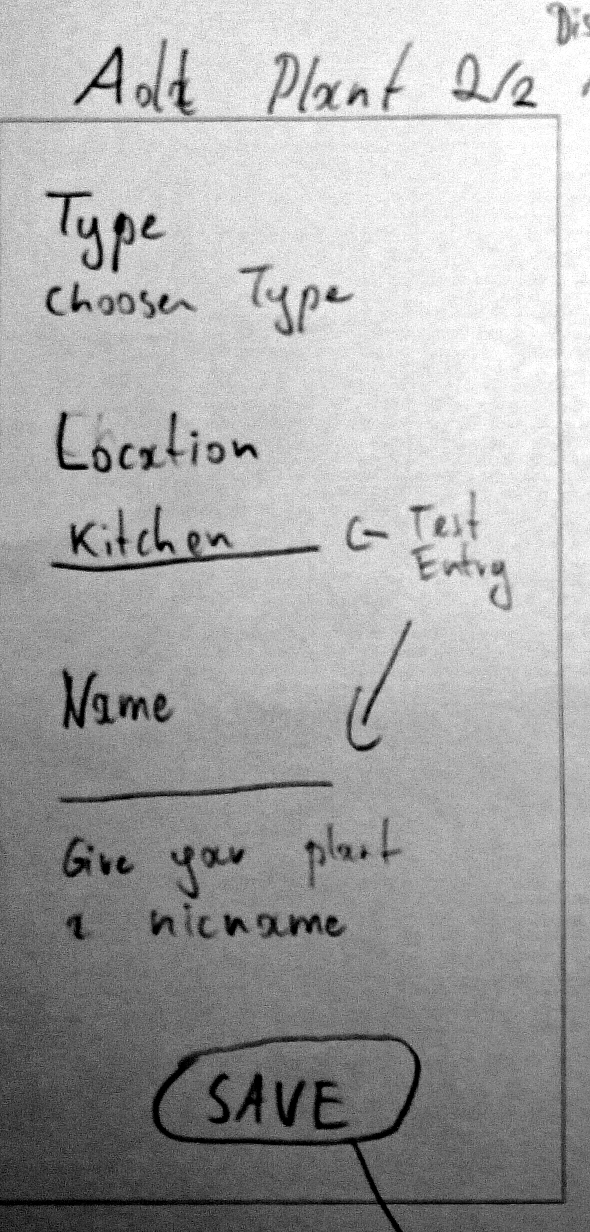 Dis
Add Plant 2/2
Type
choosen Type
Location
Kitchen
<- Test
Entry
Name
Give your plant
a nicname
SAVE